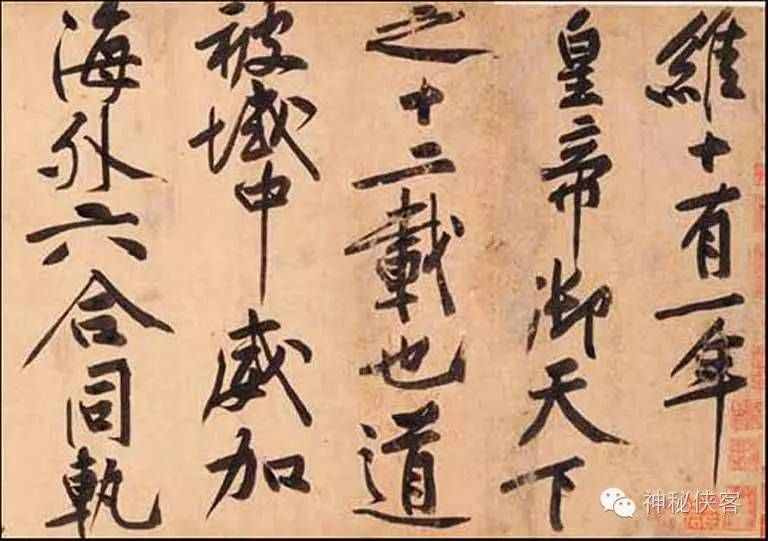 維十有一年
皇帝御天下
之十二載也道
被域中威加
海外六合同軌
神秘侠客